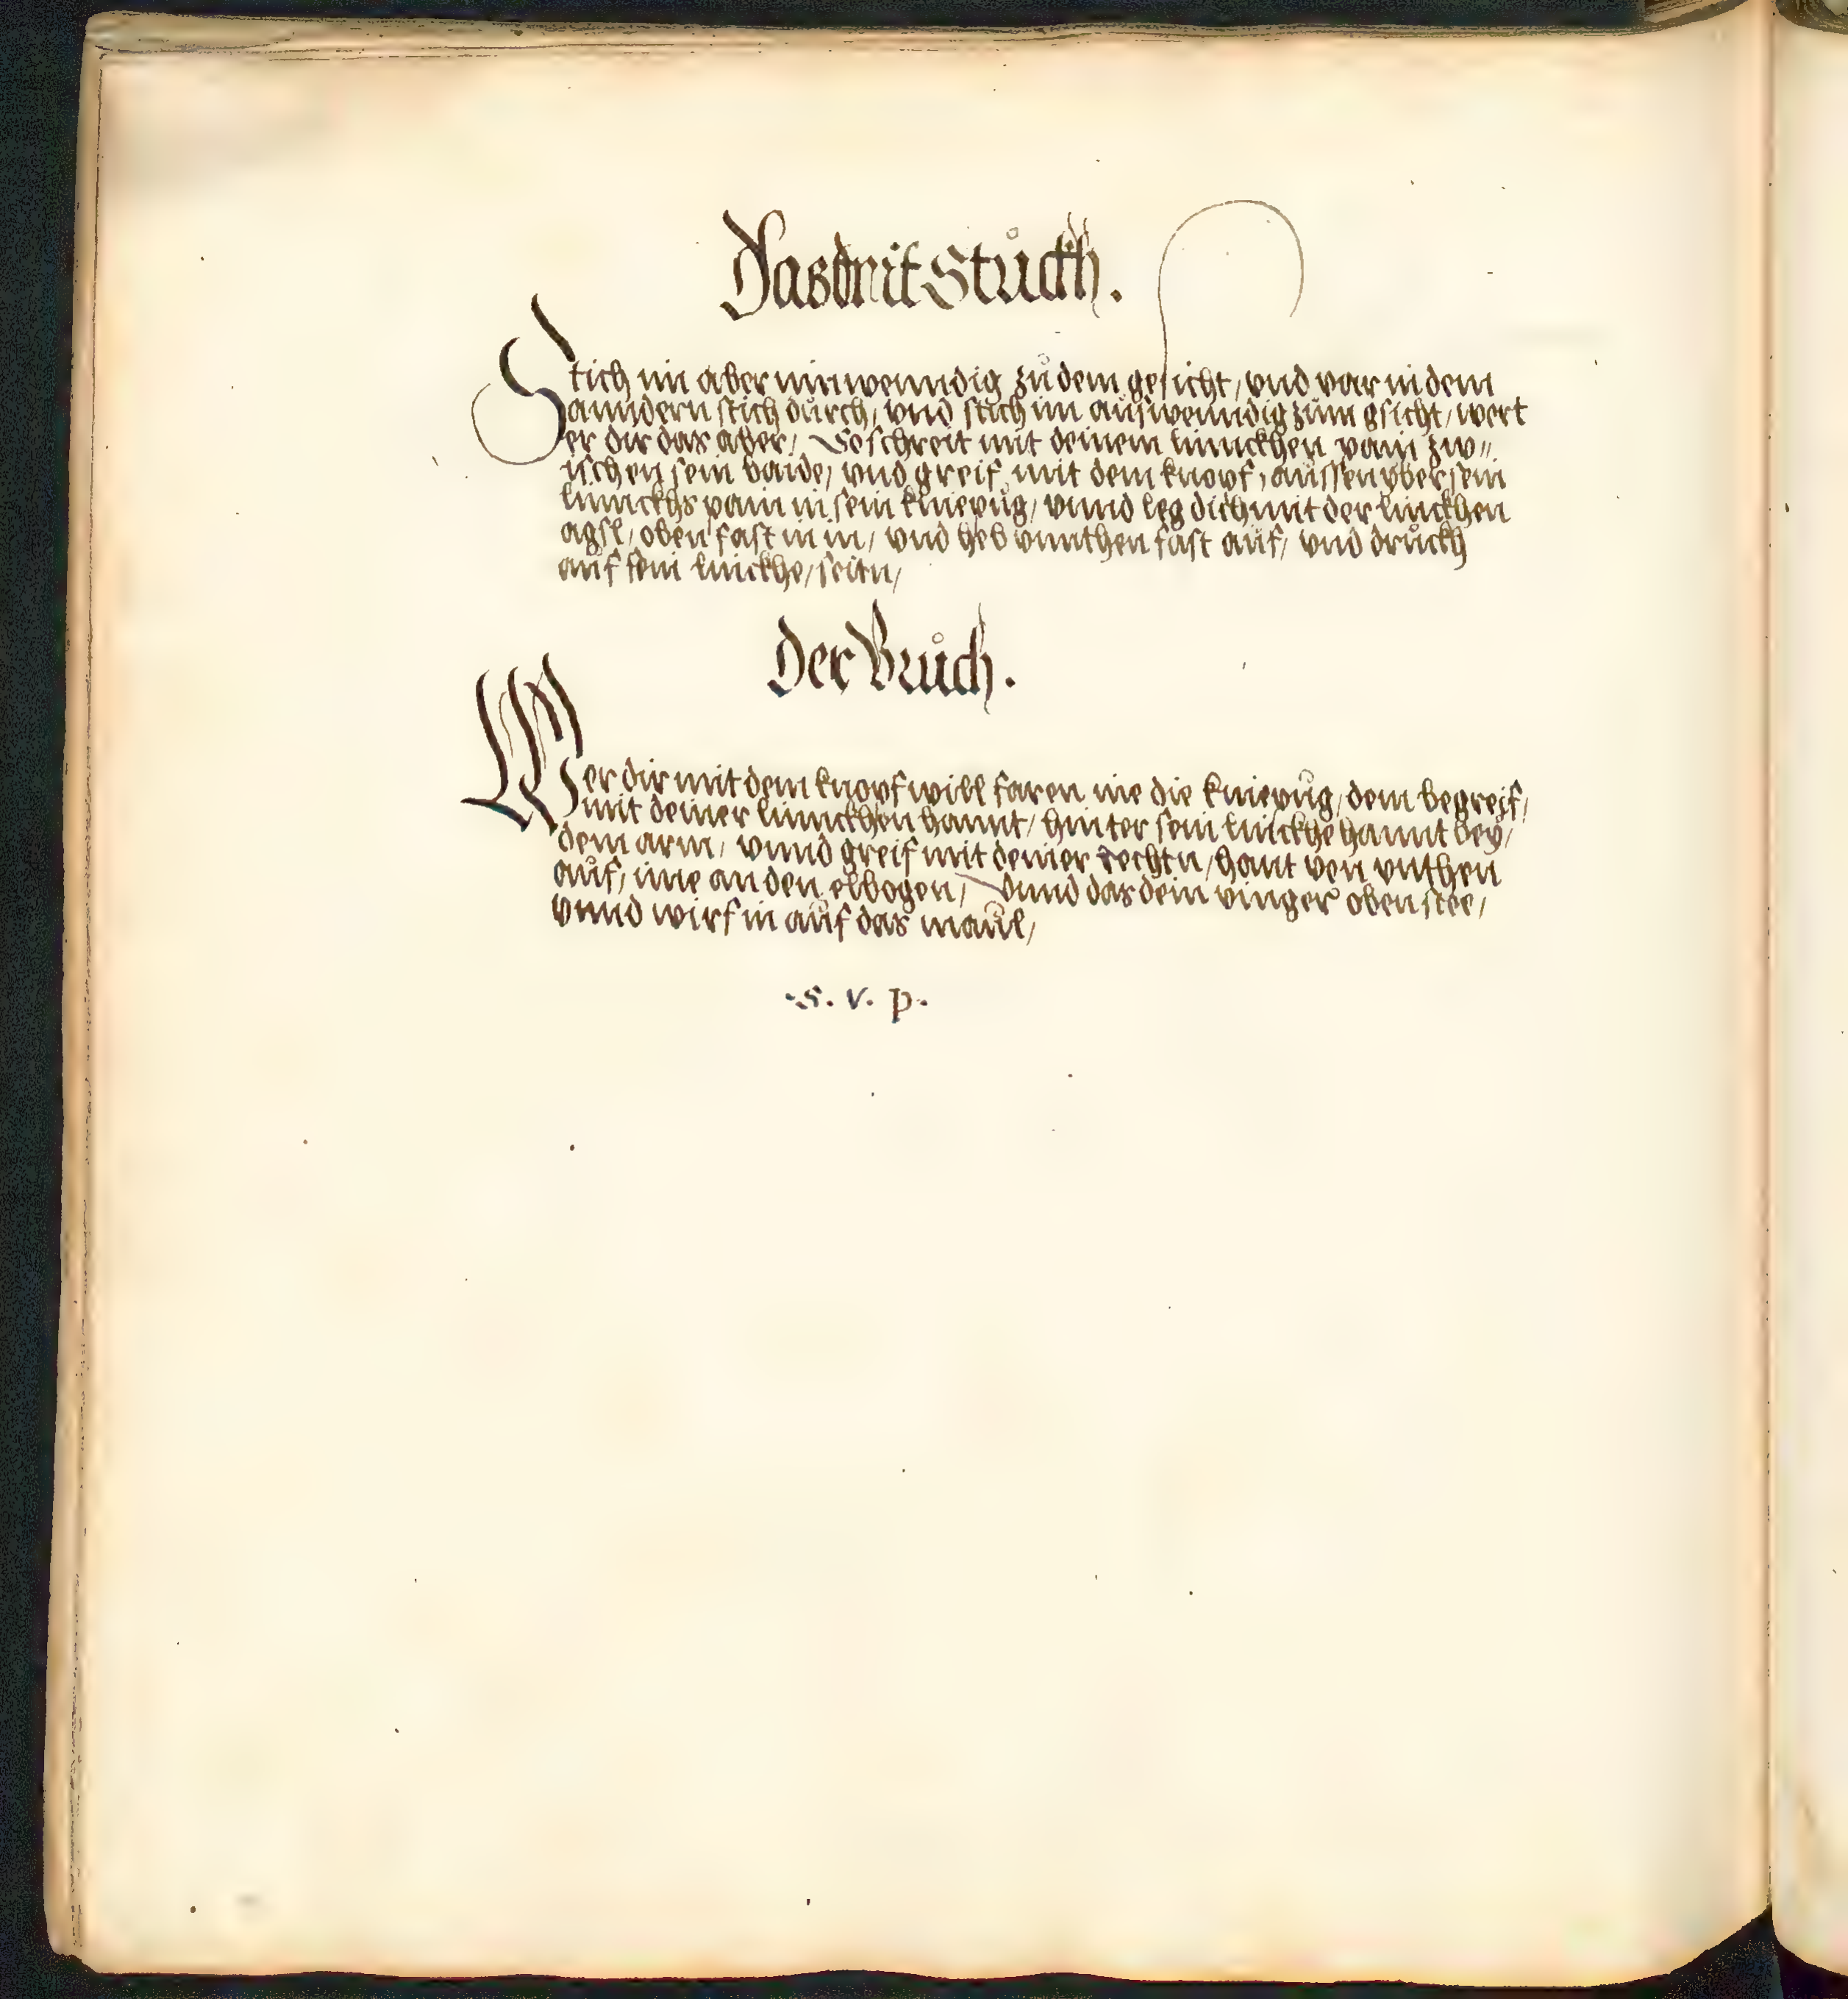 Das drit Stůckh.
Stich im aber innwenndig zů dem gesicht, vnd var in dem
anndern stich důrch, vnd stich im aůswenndig zům gsicht, wert
er dir das aber, So schreit mit deinem linnckhen pain zw„
ischen sein baide, vnd greif mit dem knopf, aůssen vber sein
linnckhs pain in sein kniepůg, vnnd leg dich mit der linckhen
agsl, oben fast in in, vnd heb vnnthen fast aůf, vnd drůckh
aůf sein linckhe, seitn,
Der Brůch.
Wer dir mit dem knopf will faren inn die kniepůg, dem begreif,
mit deiner linnckhen hannt, hinter sein linckhe hannt bey,
dem arm, vnnd greif mit deiner rechtn, hant von vnthen
aůf, ime an den elbogen, Vnnd das dein vinger oben stee,
vnnd wirf in aůf das maůl,
·S. v. p·